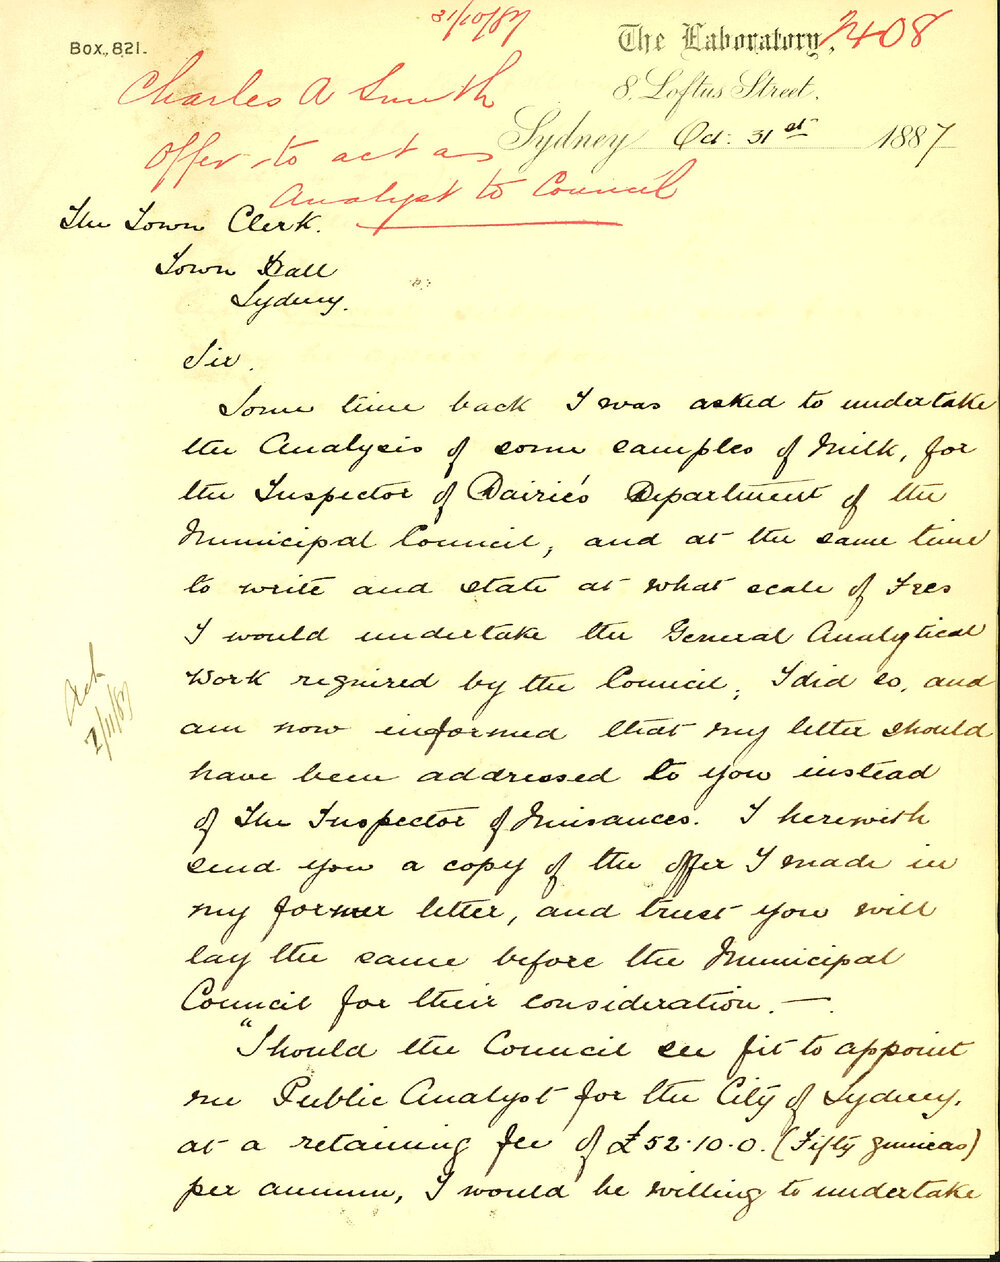 31/10/87
Box, 821.
The Laboratory,
2408
8. Loftus Street.
Charles A Smith
Sydney Oct: 31st 1887
Offer to act as
Analyst to Council
The Town Clerk.
Town Hall
Sydney.
Sir.
Some time back I was asked to undertake
the Analysis of some samples of Milk, for
the Inspector of Dairie's Department of the
Municipal Council, and at the same time
to write and state at what scale of Fees
I would undertake the General Analytical
Work required by the Council; I did so, and
am now informed that my letter should
have been addressed to you instead
of The Inspector of Nuisances. I herewith
send you a copy of the offer I made in
my former letter, and trust you will
lay the same before the Municipal
Council for their consideration. —
Ack
2/11/87
"Should the Council see fit to appoint
me Public Analyst for the City of Sydney,
at a retaining fee of £52.10.0. (Fifty guineas)
per annum, I would be willing to undertake